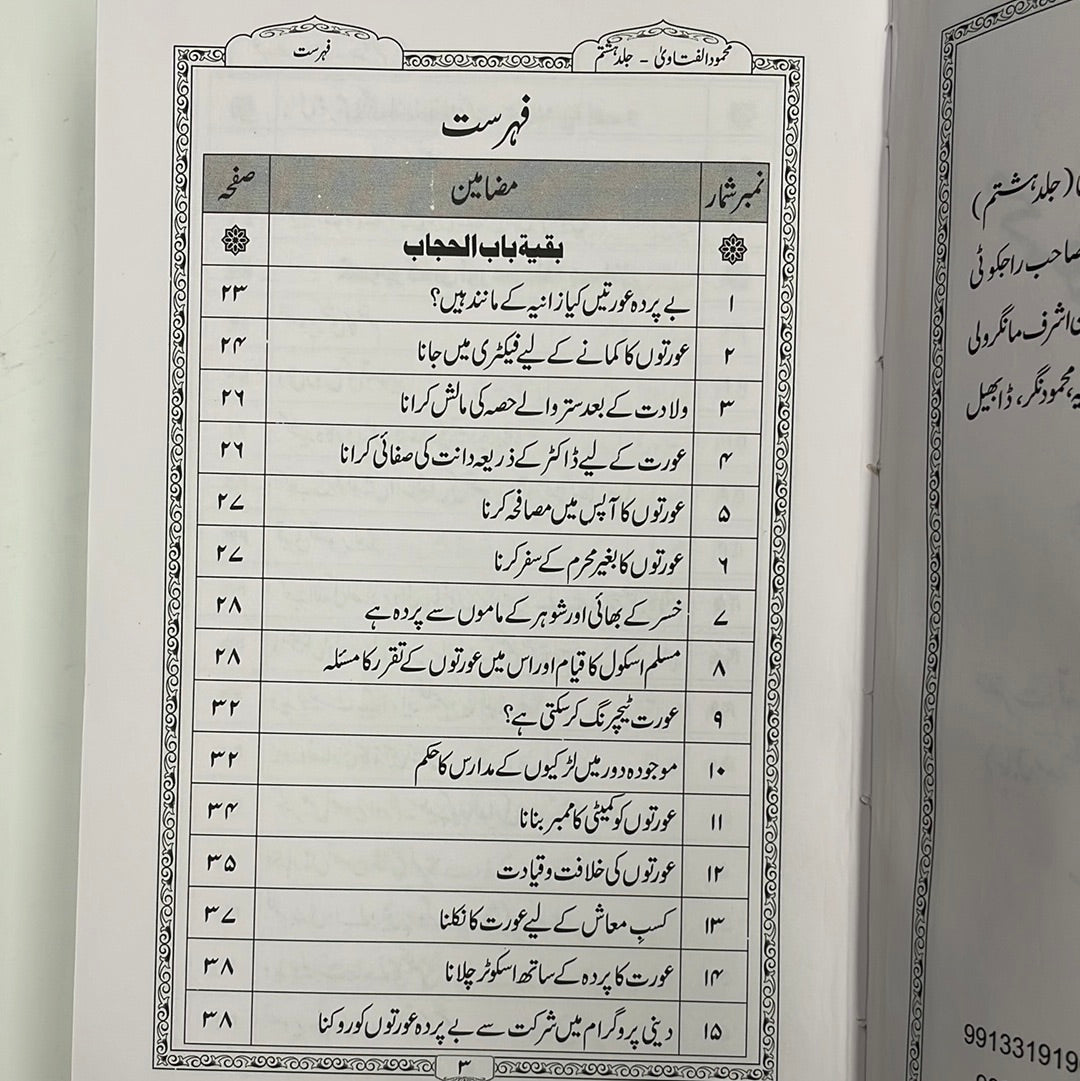 محمود الفتاویٰ - جلد ہشتم
فہرست
فہرست
نمبر شمار مضامین صفحہ
بقیة باب الحجاب
۱ بے پردہ عورتیں کیا زانیہ کے مانند ہیں؟ ۲۳
۲ عورتوں کا کمانے کے لیے فیکٹری میں جانا ۲۴
۳ ولادت کے بعد ستر والے حصہ کی مالش کرانا ۲۶
۴ عورت کے لیے ڈاکٹر کے ذریعہ دانت کی صفائی کرانا ۲۶
۵ عورتوں کا آپس میں مصافحہ کرنا ۲۷
۶ عورتوں کا بغیر محرم کے سفر کرنا ۲۷
۷ خسر کے بھائی اور شوہر کے ماموں سے پردہ ہے ۲۸
۸ مسلم اسکول کا قیام اور اس میں عورتوں کے تقرر کا مسئلہ ۲۸
۹ عورت ٹیچرنگ کر سکتی ہے؟ ۳۲
۱۰ موجودہ دور میں لڑکیوں کے مدارس کا حکم ۳۲
۱۱ عورتوں کو کمیٹی کا ممبر بنانا ۳۴
۱۲ عورتوں کی خلافت و قیادت ۳۵
۱۳ کسبِ معاش کے لیے عورت کا نکلنا ۳۷
۱۴ عورت کا پردہ کے ساتھ اسکوٹر چلانا ۳۸
۱۵ دینی پروگرام میں شرکت سے بے پردہ عورتوں کو روکنا ۳۸
۳
(جلد ہشتم)
صاحب راجکوٹی
اشرف مانگرولی
محمود نگر، ڈابھیل
991331919